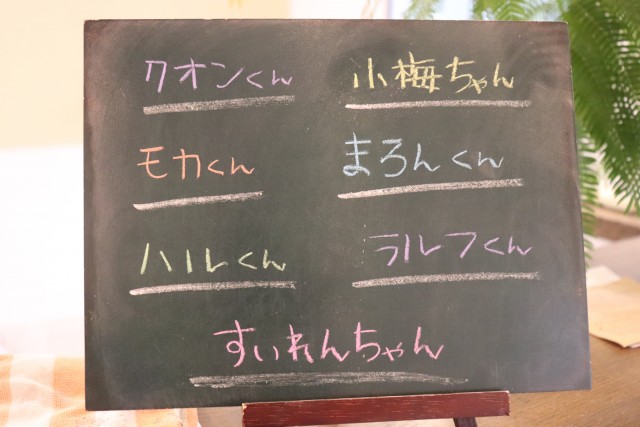 クオンくん 小梅ちゃん
モカくん まろんくん
ハルくん ラルフくん
すいれんちゃん